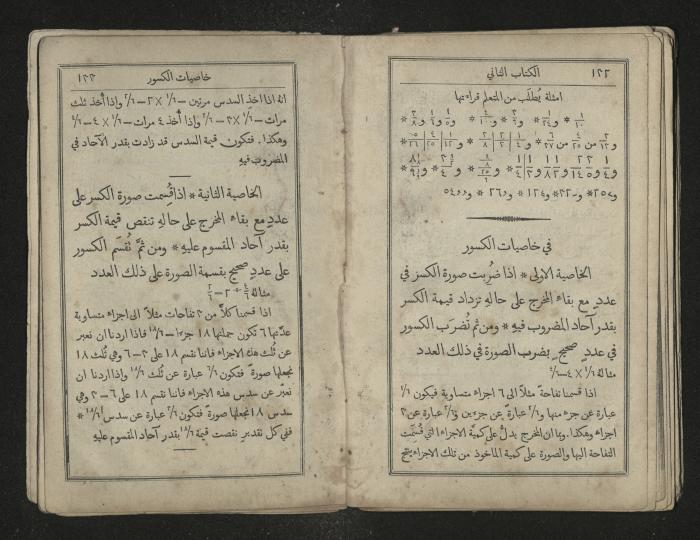 ١٢٢
الكتاب الثاني
امثلة يُطلَب من المتعلم قراءتها
في خاصيات الكسور
الخاصية الاولى * اذا ضُرِبت صورة الكسر في
عددٍ مع بقاء المخرج على حاله تزداد قيمة الكسر
بقدر آحاد المضروب فيه * ومن ثم تُضرَب الكسور
في عددٍ صحيحٍ بضرب الصورة في ذلك العدد
مثاله
اذا قسمنا تفاحة مثلاً الى ٦ اجزاء متساوية فيكون ١/٦
عبارة عن جزء منها و٢/٦ عبارة عن جزءين و٣/٦ عبارة عن ٣
اجزاء وهكذا. وبما ان المخرج يدلُّ على كمية الاجزاء التي قُسِّمت
التفاحة اليها والصورة على كمية الماخوذ من تلك الاجزاء ينتج
خاصيات الكسور
١٢٣
انه اذا أُخذ السدس مرتين
وهكذا. فتكون قيمة السدس قد زادت بقدر الآحاد في
المضروب فيه
الخاصية الثانية * اذا قُسِمت صورة الكسر على
عددٍ مع بقاء المخرج على حاله تنقص قيمة الكسر
بقدر آحاد المقسوم عليه * ومن ثمَّ تُقسَم الكسور
على عددٍ صحيحٍ بقسمة الصورة على ذلك العدد
مثاله
اذا قسمنا كلاًّ من ٣ تفاحات مثلاً الى اجزاء متساوية
عدّتها ٦ تكون جملتها ١٨ جزءًا
عن ثلث هذه الاجزاء فاننا نقسم ١٨ على ٣ = ٦ وهي ثلث ١٨
نجعلها صورةً فتكون ٦/٦ عبارة عن ثلث ١٨/٦ واذا اردنا ان
نعبّر عن سدس هذه الاجزاء فاننا نقسم ١٨ على ٦ = ٣ وهي
سدس ١٨ نجعلها صورةً فتكون ٣/٦ عبارة عن سدس ١٨/٦ *
ففي كل تقدير نقصت قيمة ١٨/٦ بقدر آحاد المقسوم عليه